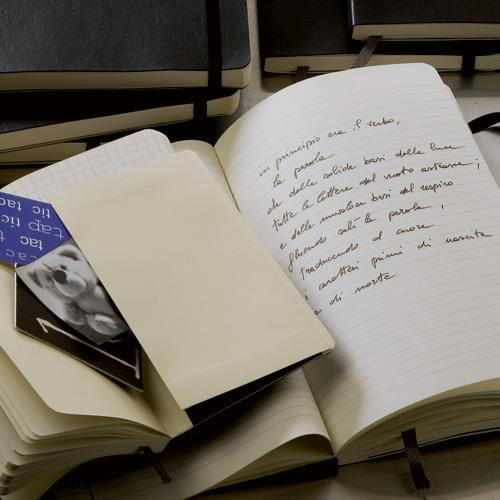 in principio era il verbo,
la parola
che dalle solide basi della luna
tutte le lettere del moto astrasse;
e dalle muscolose basi del respiro
salì la parola,
traducendo al cuore
i caratteri primi di nascita
di morte
tic tac
tap tic
tac
tic tac